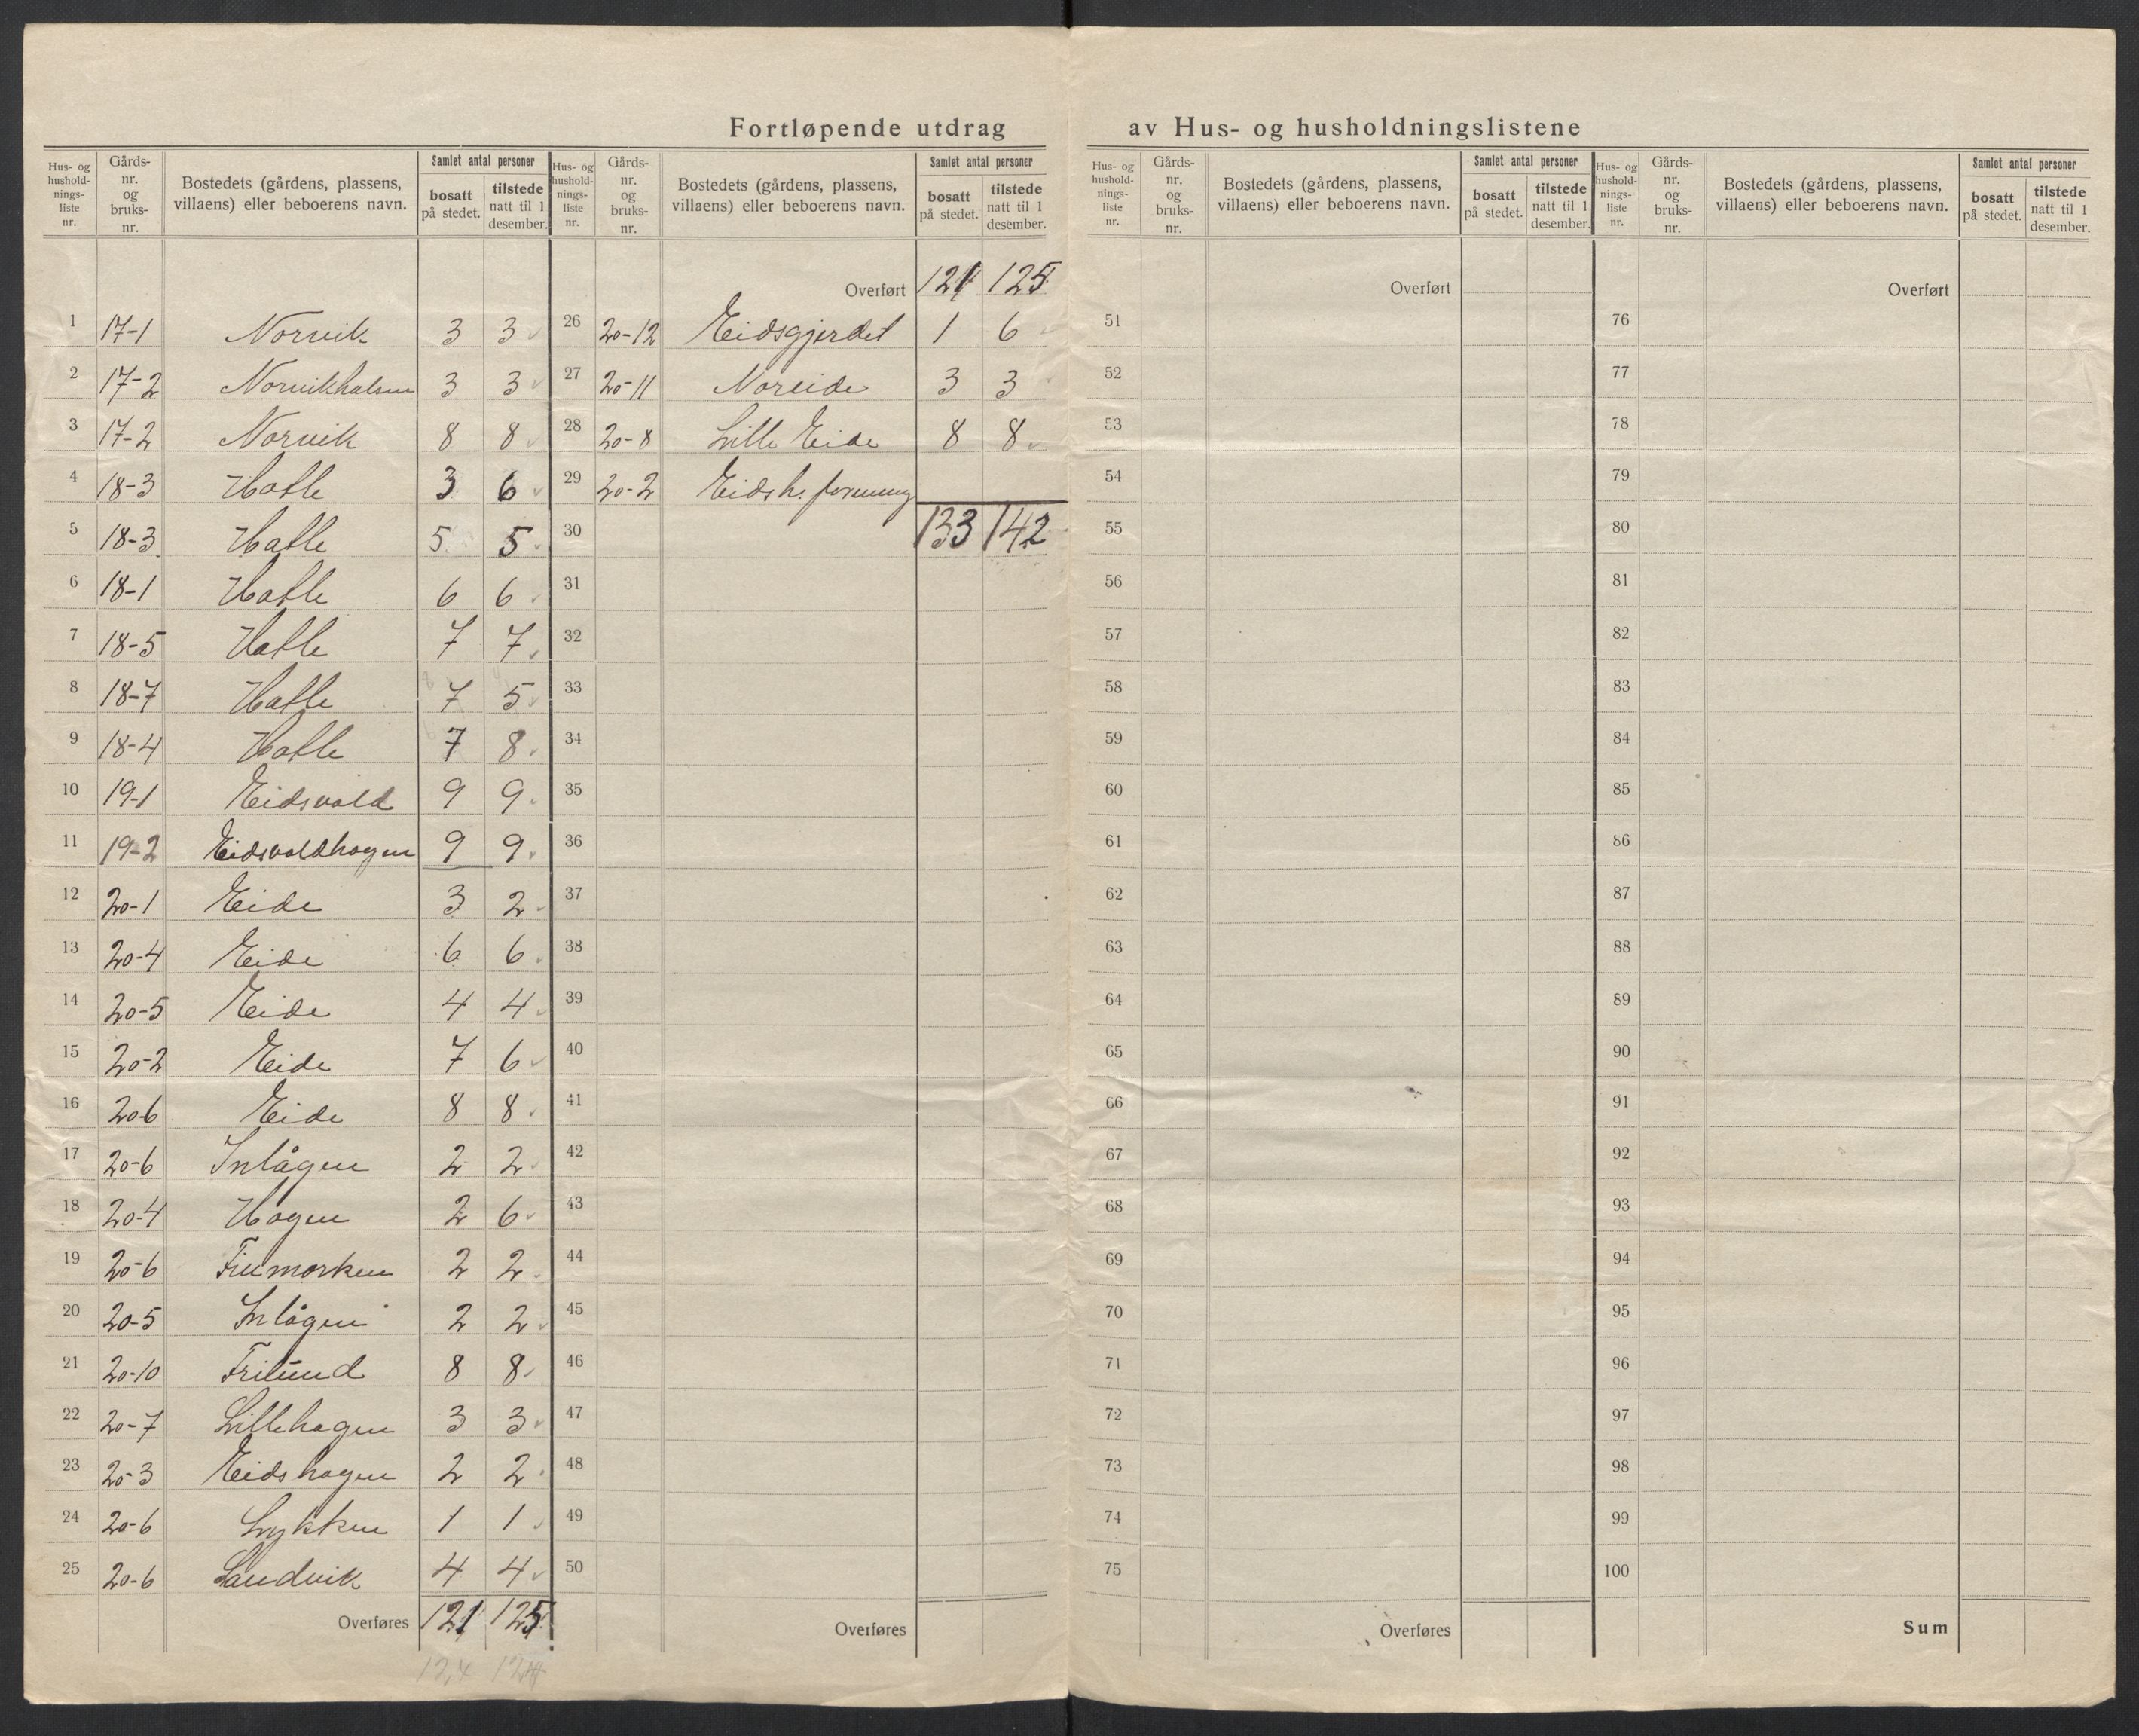 Fortløpende utdrag av Hus- og husholdningslistene
Hus- og hushold-nings-liste nr. Gårds-nr. og bruks-nr. Bostedets (gårdens, plassens, villaens) eller beboerens navn. Samlet antal personer bosatt på stedet. tilstede natt til 1 desember.
1 17-1 Norvik 3 3
2 17-2 Norvikhalsen 3 3
3 17-2 Norvik 8 8
4 18-3 Hatle 3 6
5 18-3 Hatle 5 5
6 18-1 Hatle 6 6
7 18-5 Hatle 7 7
8 18-7 Hatle 7 5
9 18-4 Hatle 7 8
10 19-1 Eidsvold 9 9
11 19-2 Eidsvoldhagen 9 9
12 20-1 Eide 3 2
13 20-4 Eide 6 6
14 20-5 Eide 4 4
15 20-2 Eide 7 6
16 20-6 Eide 8 8
17 20-6 Inlågen 2 2
18 20-4 Hagen 2 6
19 20-6 Finmarken 2 2
20 20-5 Inlågen 2 2
21 20-10 Frilund 8 8
22 20-7 Lillehagen 3 3
23 20-3 Eidshagen 2 2
24 20-6 Lykken 1 1
25 20-6 Sandvik 4 4
Overføres 121 125
124 124
Hus- og hushold-nings-liste nr. Gårds-nr. og bruks-nr. Bostedets (gårdens, plassens, villaens) eller beboerens navn. Samlet antal personer bosatt på stedet. tilstede natt til 1 desember.
Overført 121 125
26 20-12 Eidsgjerdet 1 6
27 20-11 Noreide 3 3
28 20-8 Lille Eide 8 8
29 20-2 Eidsh.
30 133 142
31
32
33
34
35
36
37
38
39
40
41
42
43
44
45
46
47
48
49
50
Overføres
Hus- og hushold-nings-liste nr. Gårds-nr. og bruks-nr. Bostedets (gårdens, plassens, villaens) eller beboerens navn. Samlet antal personer bosatt på stedet. tilstede natt til 1 desember.
Overført
51
52
53
54
55
56
57
58
59
60
61
62
63
64
65
66
67
68
69
70
71
72
73
74
75
Overføres
Hus- og hushold-nings-liste nr. Gårds-nr. og bruks-nr. Bostedets (gårdens, plassens, villaens) eller beboerens navn. Samlet antal personer bosatt på stedet. tilstede natt til 1 desember.
Overført
76
77
78
79
80
81
82
83
84
85
86
87
88
89
90
91
92
93
94
95
96
97
98
99
100
Sum